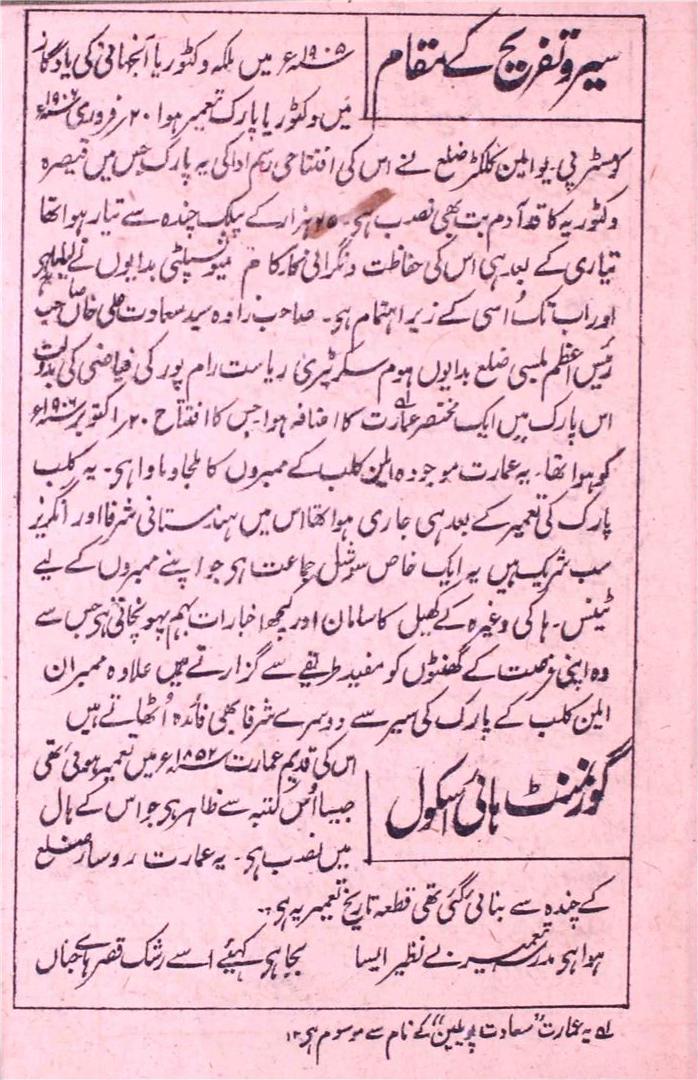 سیر و تفریح کے مقام
۱۹۰۵ء میں ملکہ وکٹوریا آنجہانی کی یادگار
میں وکٹوریا پارک تعمیر ہوا ۲۰؍ فروری ۱۹۰۶ء
کو مسٹر پی۔ یو ایلن کلکٹر ضلع نے اس کی افتتاحی رسم ادا کی یہ پارک جس میں قیصرہ
وکٹوریہ کا قد آدم بت بھی نصب ہی۔ ہزار کے پبلک چندہ سے تیار ہوا تھا
تیاری کے بعد ہی اس کی حفاظت و نگرانی کا کام میونسپلٹی بدایوں نے لے لیا ہی
اور اب تک اُسی کے زیر اہتمام ہی۔ صاحبزادہ سید سعادت علی خاں صاحب
رئیس اعظم ملسی ضلع بدایوں ہوم سکرٹیری ریاست رام پور کی فیاضی کی بدولت
اس پارک میں ایک مختصر عمارت کا اضافہ ہوا جس کا افتتاح ۲۰؍ اکتوبر ۱۹۰۶ء
کو ہوا تھا۔ یہ عمارت موجودہ ایلن کلب کے ممبروں کا ملجا و ماوا ہی۔ یہ کلب
پارک کی تعمیر کے بعد ہی جاری ہوا تھا اس میں ہندستانی شرفا اور انگریز
سب شریک ہیں یہ ایک خاص سوشل جماعت ہی جو اپنے ممبروں کے لیے
ٹینس۔ ہاکی وغیرہ کے کھیل کا سامان اور کچھ اخبارات بہم پہونچاتی ہی جس سے
وہ اپنی فرصت کے گھنٹوں کو مفید طریقے سے گزارتے ہیں علاوہ ممبران
ایلن کلب کے پارک کی سیر سے دوسرے شرفا بھی فائدہ اُٹھاتے ہیں
گورنمنٹ ہائی اسکول
اس کی قدیم عمارت ۱۸۵۲ء میں تعمیر ہوئی تھی
جیسا اُس کتبہ سے ظاہر ہی جو اس کے ہال
میں نصب ہی۔ یہ عمارت روسار ضلع
کے چندہ سے بنائی گئی تھی قطعہ تاریخ تعمیر یہ ہی
ہوا ہی مدرسہ تعمیر بے نظیر ایسا بجا ہی کہیئے اسے رشک قصر ہاے جناں
لہ یہ عمارت "سعادت پویلین" کے نام سے موسوم ہی ۱۲